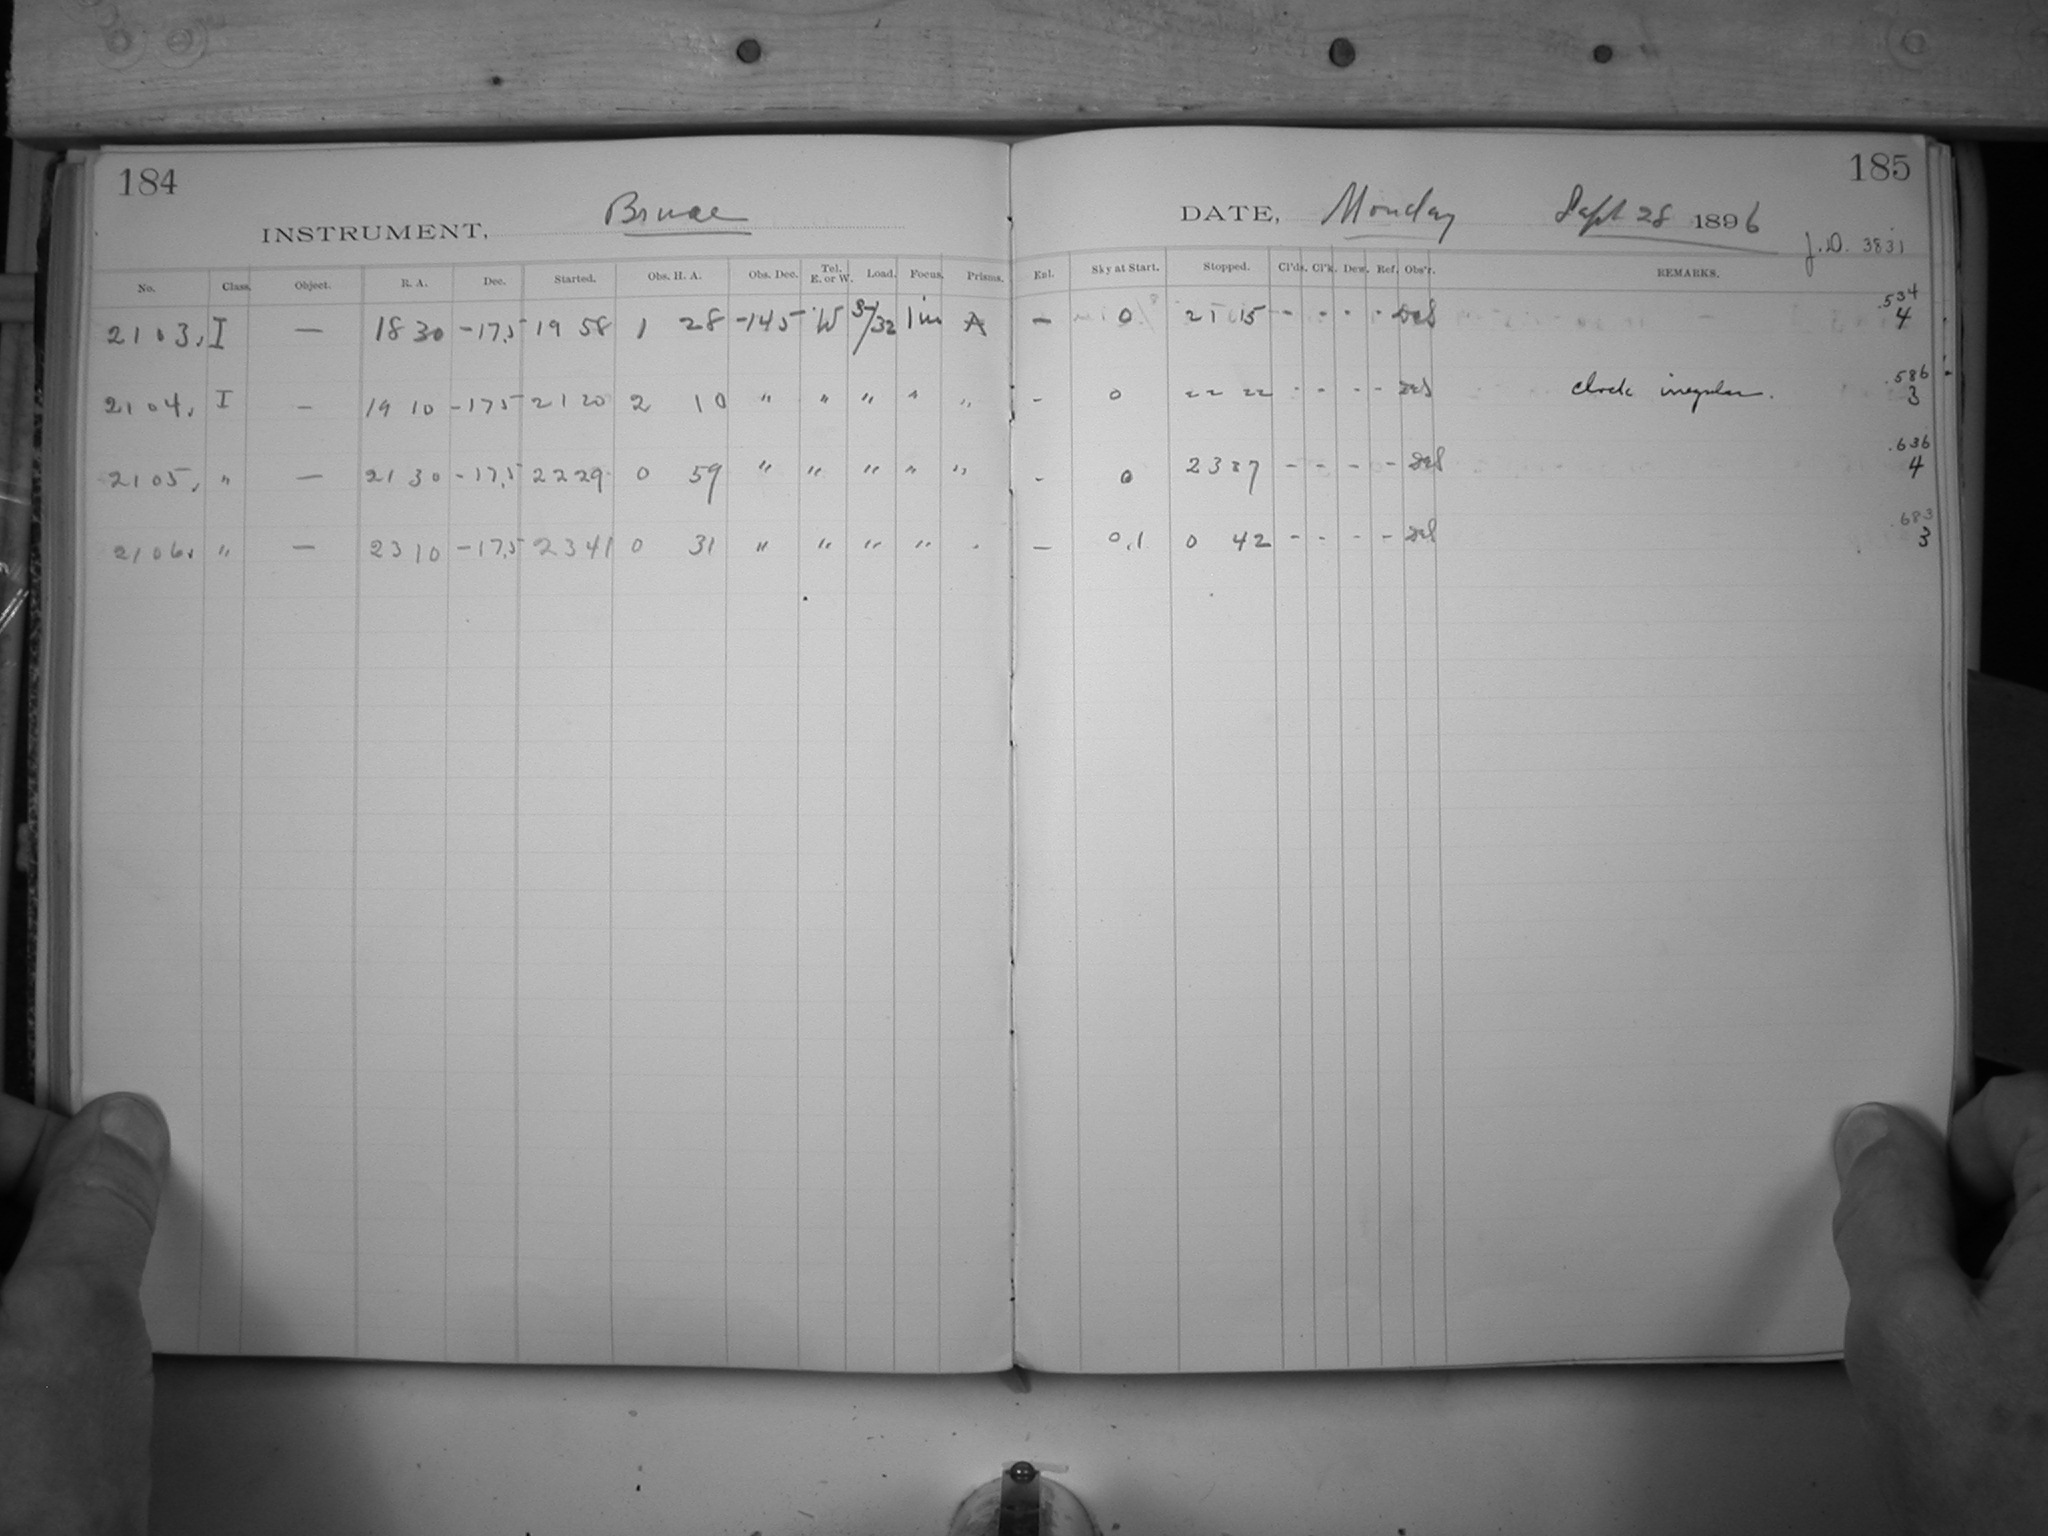 184
INSTRUMENT, Bruce
No. Class. Object. R. A. Dec. Started. Obs. H. A. Obs. Dec. Tel. E. or W. Load. Focus. Prisms.
2103, I — 18 30 -17,5 19 58 1 28 -145 W 5/32 1 in A
2104, I — 19 10 -175 21 20 2 10 " " " " "
2105, " — 21 30 -17,5 22 29 0 59 " " " " "
2106, " — 23 10 -17,5 23 41 0 31 " " " "
185
DATE, Monday Sept 28 1896
J.D. 3831
Enl. Sky at Start. Stopped. Cl'ds. Cl'k. Dew. Ref. Obs'r. REMARKS.
— 0 21 15 - - - - .534 4
- 0 22 22 - - - - clock irregular. .586 3
- 0 23 37 - - - - .636 4
— 0,1 0 42 - - - - .683 3